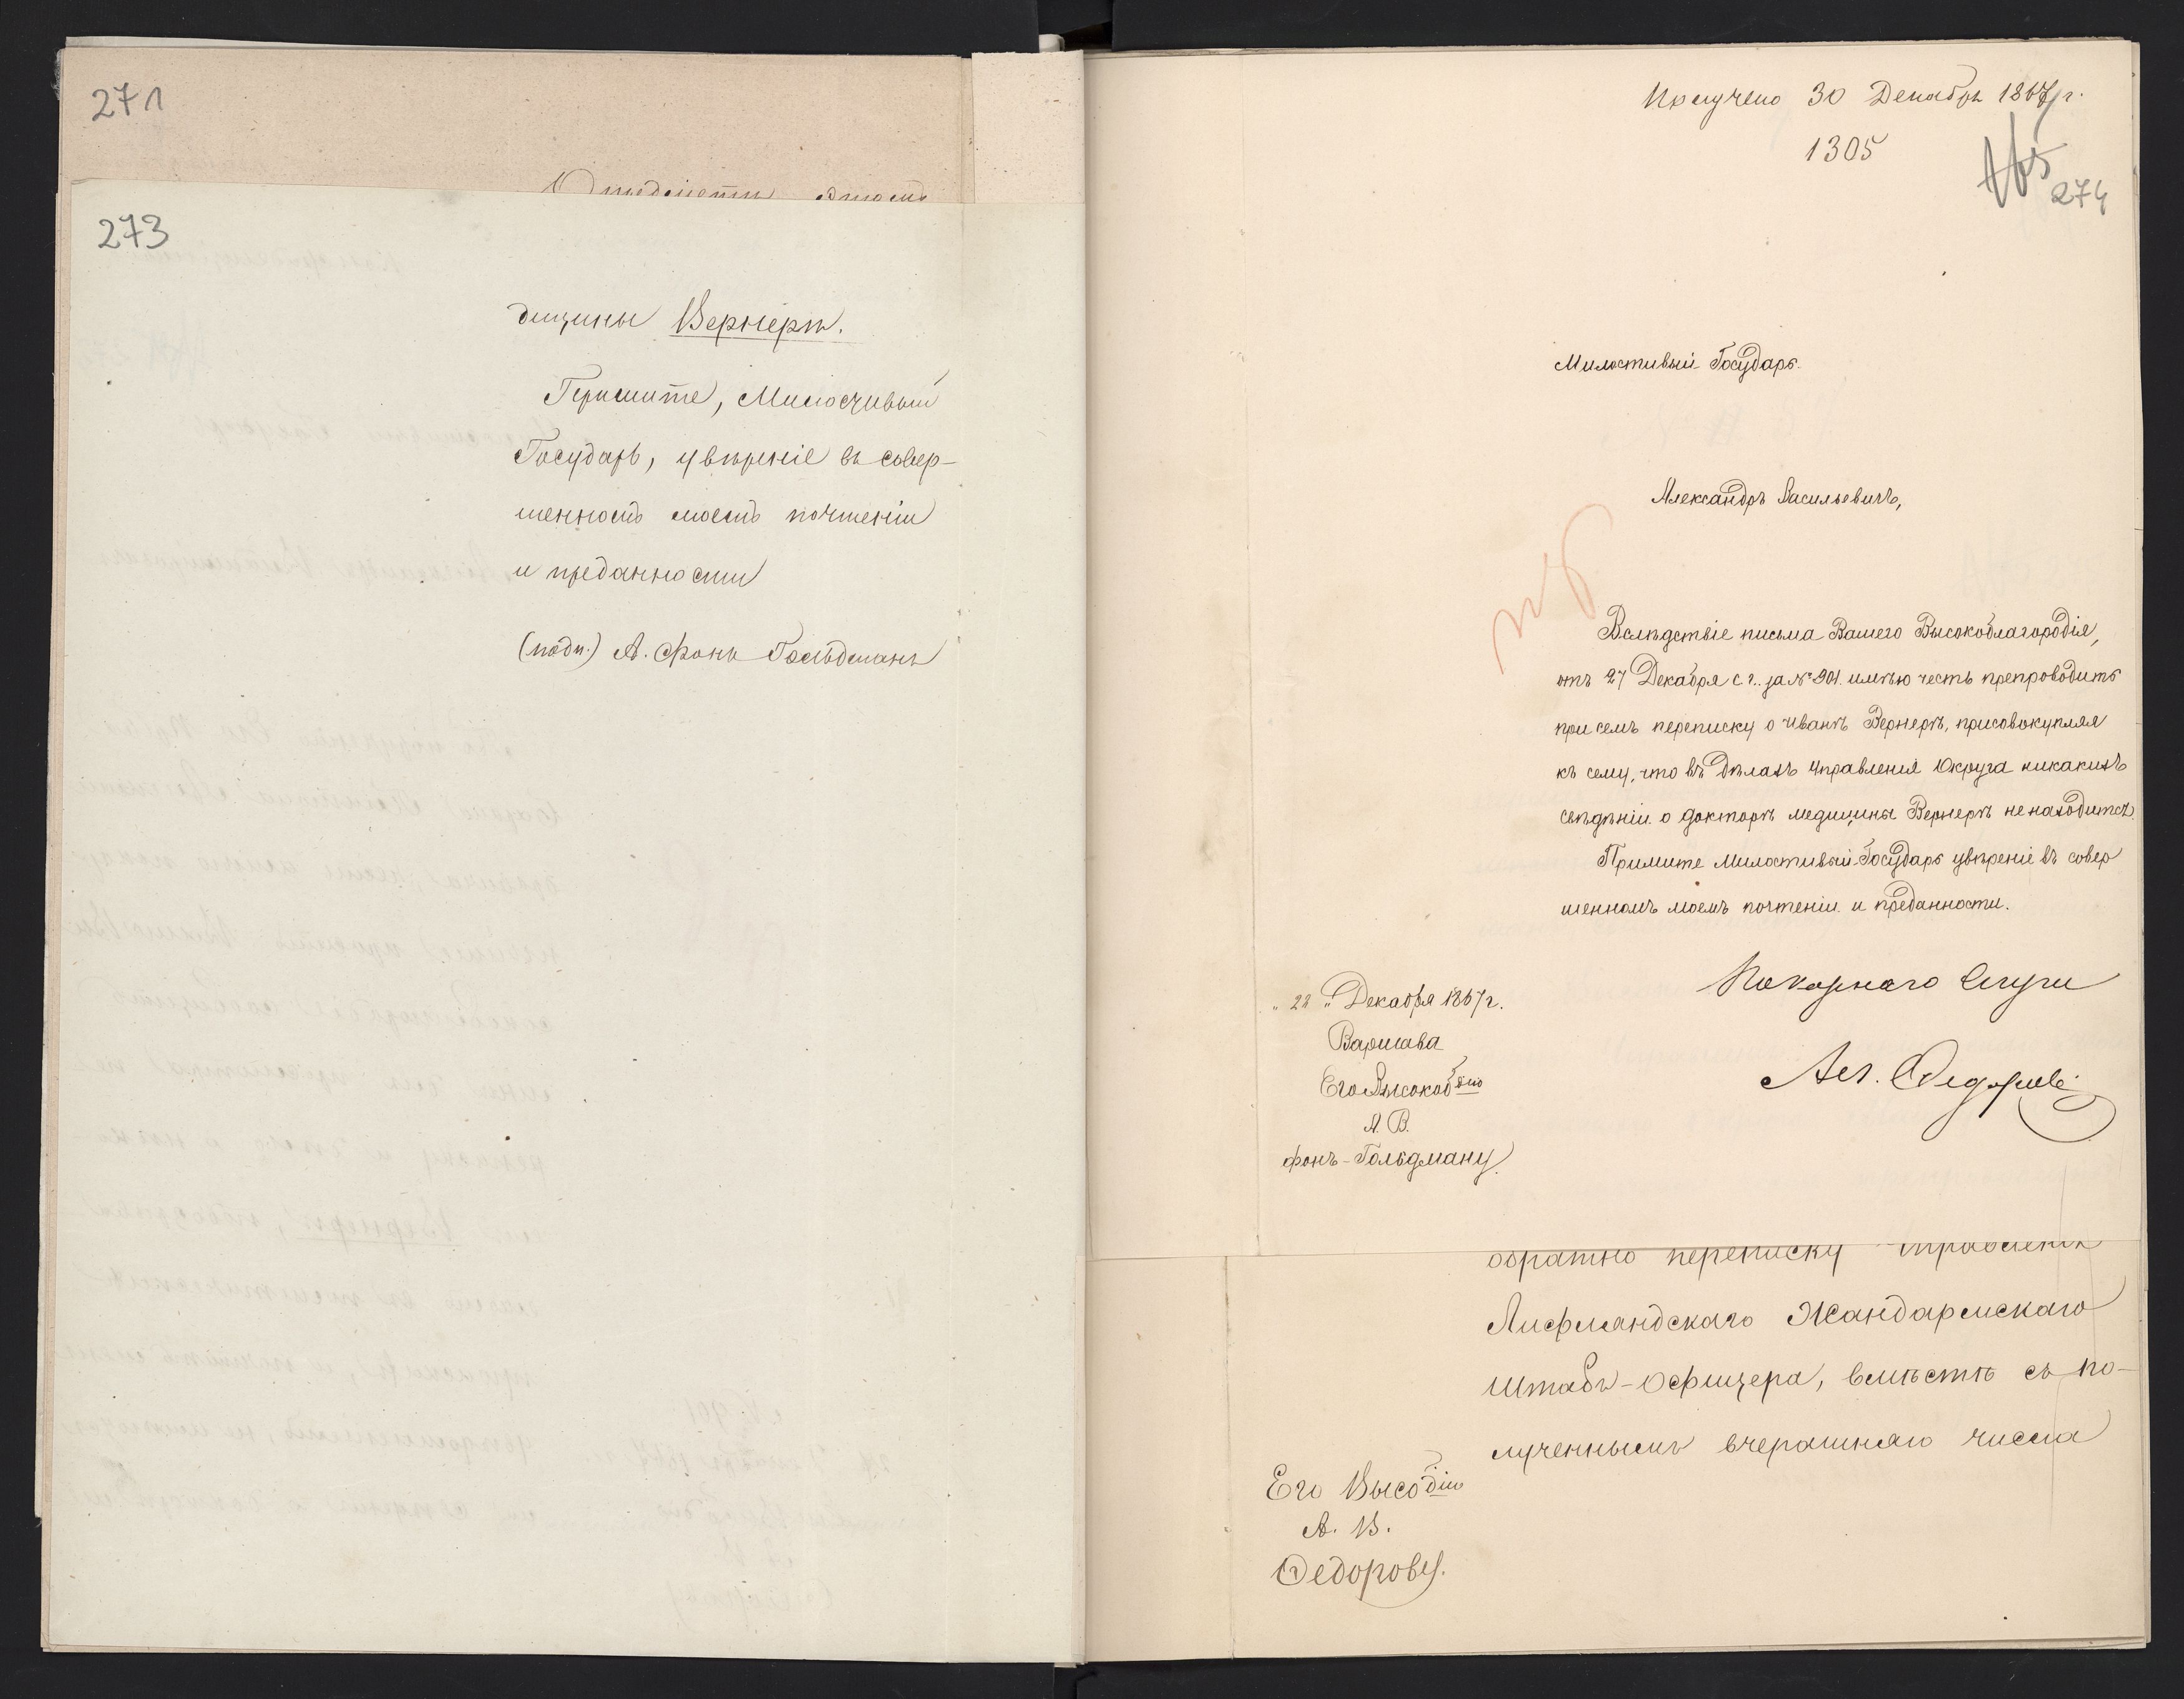 271
273
дицины Вернерѣ.
Примите, Милостивый
Государь, увѣреніе въ совер-
шенномъ моемъ почтеніи
и преданности
(подп.) А. фонъ Гольдманъ
Получено 30 Декабря 1867 г.
1305
165
274
Милостивый Государь
Александръ Васильевичъ,
Вслѣдствіе письма Вашего Высокоблагородія,
отъ 27 Декабря с. г. за № 901. имѣю честь препроводить
при семъ переписку о Иванѣ Вернерѣ, присовокупляя
къ сему, что въ дѣлахъ Управленія Округа никакихъ
свѣдѣній о докторѣ медицины Вернерѣ не находится.
Примите Милостивый Государь увѣреніе въ совер
шенномъ моемъ почтеніи и преданности.
Покорнаго Слуги
Ал. Федоровъ
"28" Декабря 1867 г.
Варшава
Его Высокобдію
А. В.
фонъ-Гольдману.
обратно переписку Управленія
Лифляндскаго Жандармскаго
Штабъ-Офицера, вмѣстѣ съ по-
лученнымъ вчерашняго числа
Его Высобдію
А. В.
Федорову.